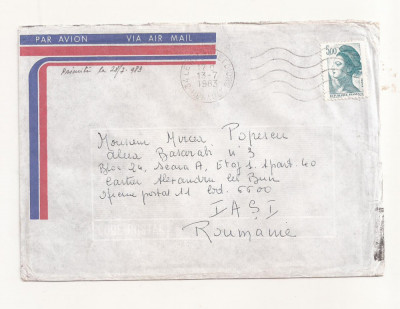 PAR AVION VIA AIR MAIL
la 28/7 983
13-7
1983
5,00
REPUBLIQUE FRANÇAISE
Monsieur Mircea Popescu
Aleea Basarabi n. 3
Bloc 24, Scara A, Etaj 1 Apart. 40
Cartier Alexandru cel Bun
Oficine postal 11 Cod. 6600
IAŞI
Roumanie